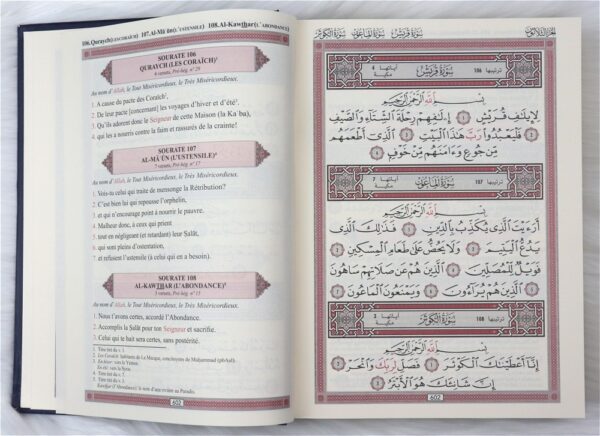 106.Quraych(LES CORAÏCH) 107.Al-Mâ'ûn(L'USTENSILE) 108.Al-Kawthar(L'ABONDANCE)
SOURATE 106
QURAYCH (LES CORAÏCH)¹
4 versets, Pré-hég. n° 29
Au nom d'Allah, le Tout Miséricordieux, le Très Miséricordieux.
1. A cause du pacte des Coraïch²,
2. De leur pacte [concernant] les voyages d'hiver et d'été³.
3. Qu'ils adorent donc le Seigneur de cette Maison (la Ka'ba),
4. qui les a nourris contre la faim et rassurés de la crainte!
SOURATE 107
AL-MÂ'ÛN (L'USTENSILE)⁴
7 versets, Pré-hég. n° 17
Au nom d'Allah, le Tout Miséricordieux, le Très Miséricordieux.
1. Vois-tu celui qui traite de mensonge la Rétribution?
2. C'est bien lui qui repousse l'orphelin,
3. et qui n'encourage point à nourrir le pauvre.
4. Malheur donc, à ceux qui prient
5. tout en négligeant (et retardant) leur Salât,
6. qui sont pleins d'ostentation,
7. et refusent l'ustensile (à celui qui en a besoin).
SOURATE 108
AL-KAWTHAR (L'ABONDANCE)⁵
3 versets, Pré-hég. n° 15
Au nom d'Allah, le Tout Miséricordieux, le Très Miséricordieux.
1. Nous t'avons certes, accordé l'Abondance.
2. Accomplis la Salât pour ton Seigneur et sacrifie.
3. Celui qui te hait sera certes, sans postérité.
1 Titre tiré du v. 1.
2 Les Coraïch: habitants de La Mecque, concitoyens de Muhammad (pbAsl).
3 En hiver: vers le Yémen.
En été: vers la Syrie.
4 Titre tiré du v. 7.
5 Titre tiré du v. 1.
Kawthar (l'Abondance): le nom d'une rivière au Paradis.
602
الجزء الثلاثون سورة قريش سورة الماعون سورة الكوثر
ترتيبها 106 سورة قريش آياتها 4 مكية
بِسْمِ اللَّهِ الرَّحْمَٰنِ الرَّحِيمِ
لِإِيلَافِ قُرَيْشٍ ١ إِۦلَافِهِمْ رِحْلَةَ الشِّتَاءِ وَالصَّيْفِ
٢ فَلْيَعْبُدُوا رَبَّ هَٰذَا الْبَيْتِ ٣ الَّذِي أَطْعَمَهُم
مِّن جُوعٍ وَءَامَنَهُم مِّنْ خَوْفٍ ٤
ترتيبها 107 سورة الماعون آياتها 7 مكية
بِسْمِ اللَّهِ الرَّحْمَٰنِ الرَّحِيمِ
أَرَءَيْتَ الَّذِي يُكَذِّبُ بِالدِّينِ ١ فَذَٰلِكَ الَّذِي
يَدُعُّ الْيَتِيمَ ٢ وَلَا يَحُضُّ عَلَىٰ طَعَامِ الْمِسْكِينِ ٣
فَوَيْلٌ لِّلْمُصَلِّينَ ٤ الَّذِينَ هُمْ عَن صَلَاتِهِمْ سَاهُونَ
٥ الَّذِينَ هُمْ يُرَاءُونَ ٦ وَيَمْنَعُونَ الْمَاعُونَ ٧
ترتيبها 108 سورة الكوثر آياتها 3 مكية
بِسْمِ اللَّهِ الرَّحْمَٰنِ الرَّحِيمِ
إِنَّا أَعْطَيْنَاكَ الْكَوْثَرَ ١ فَصَلِّ لِرَبِّكَ وَانْحَرْ
٢ إِنَّ شَانِئَكَ هُوَ الْأَبْتَرُ ٣
602